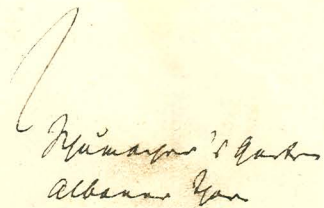 Schumacher's Garten
Albaner Thor